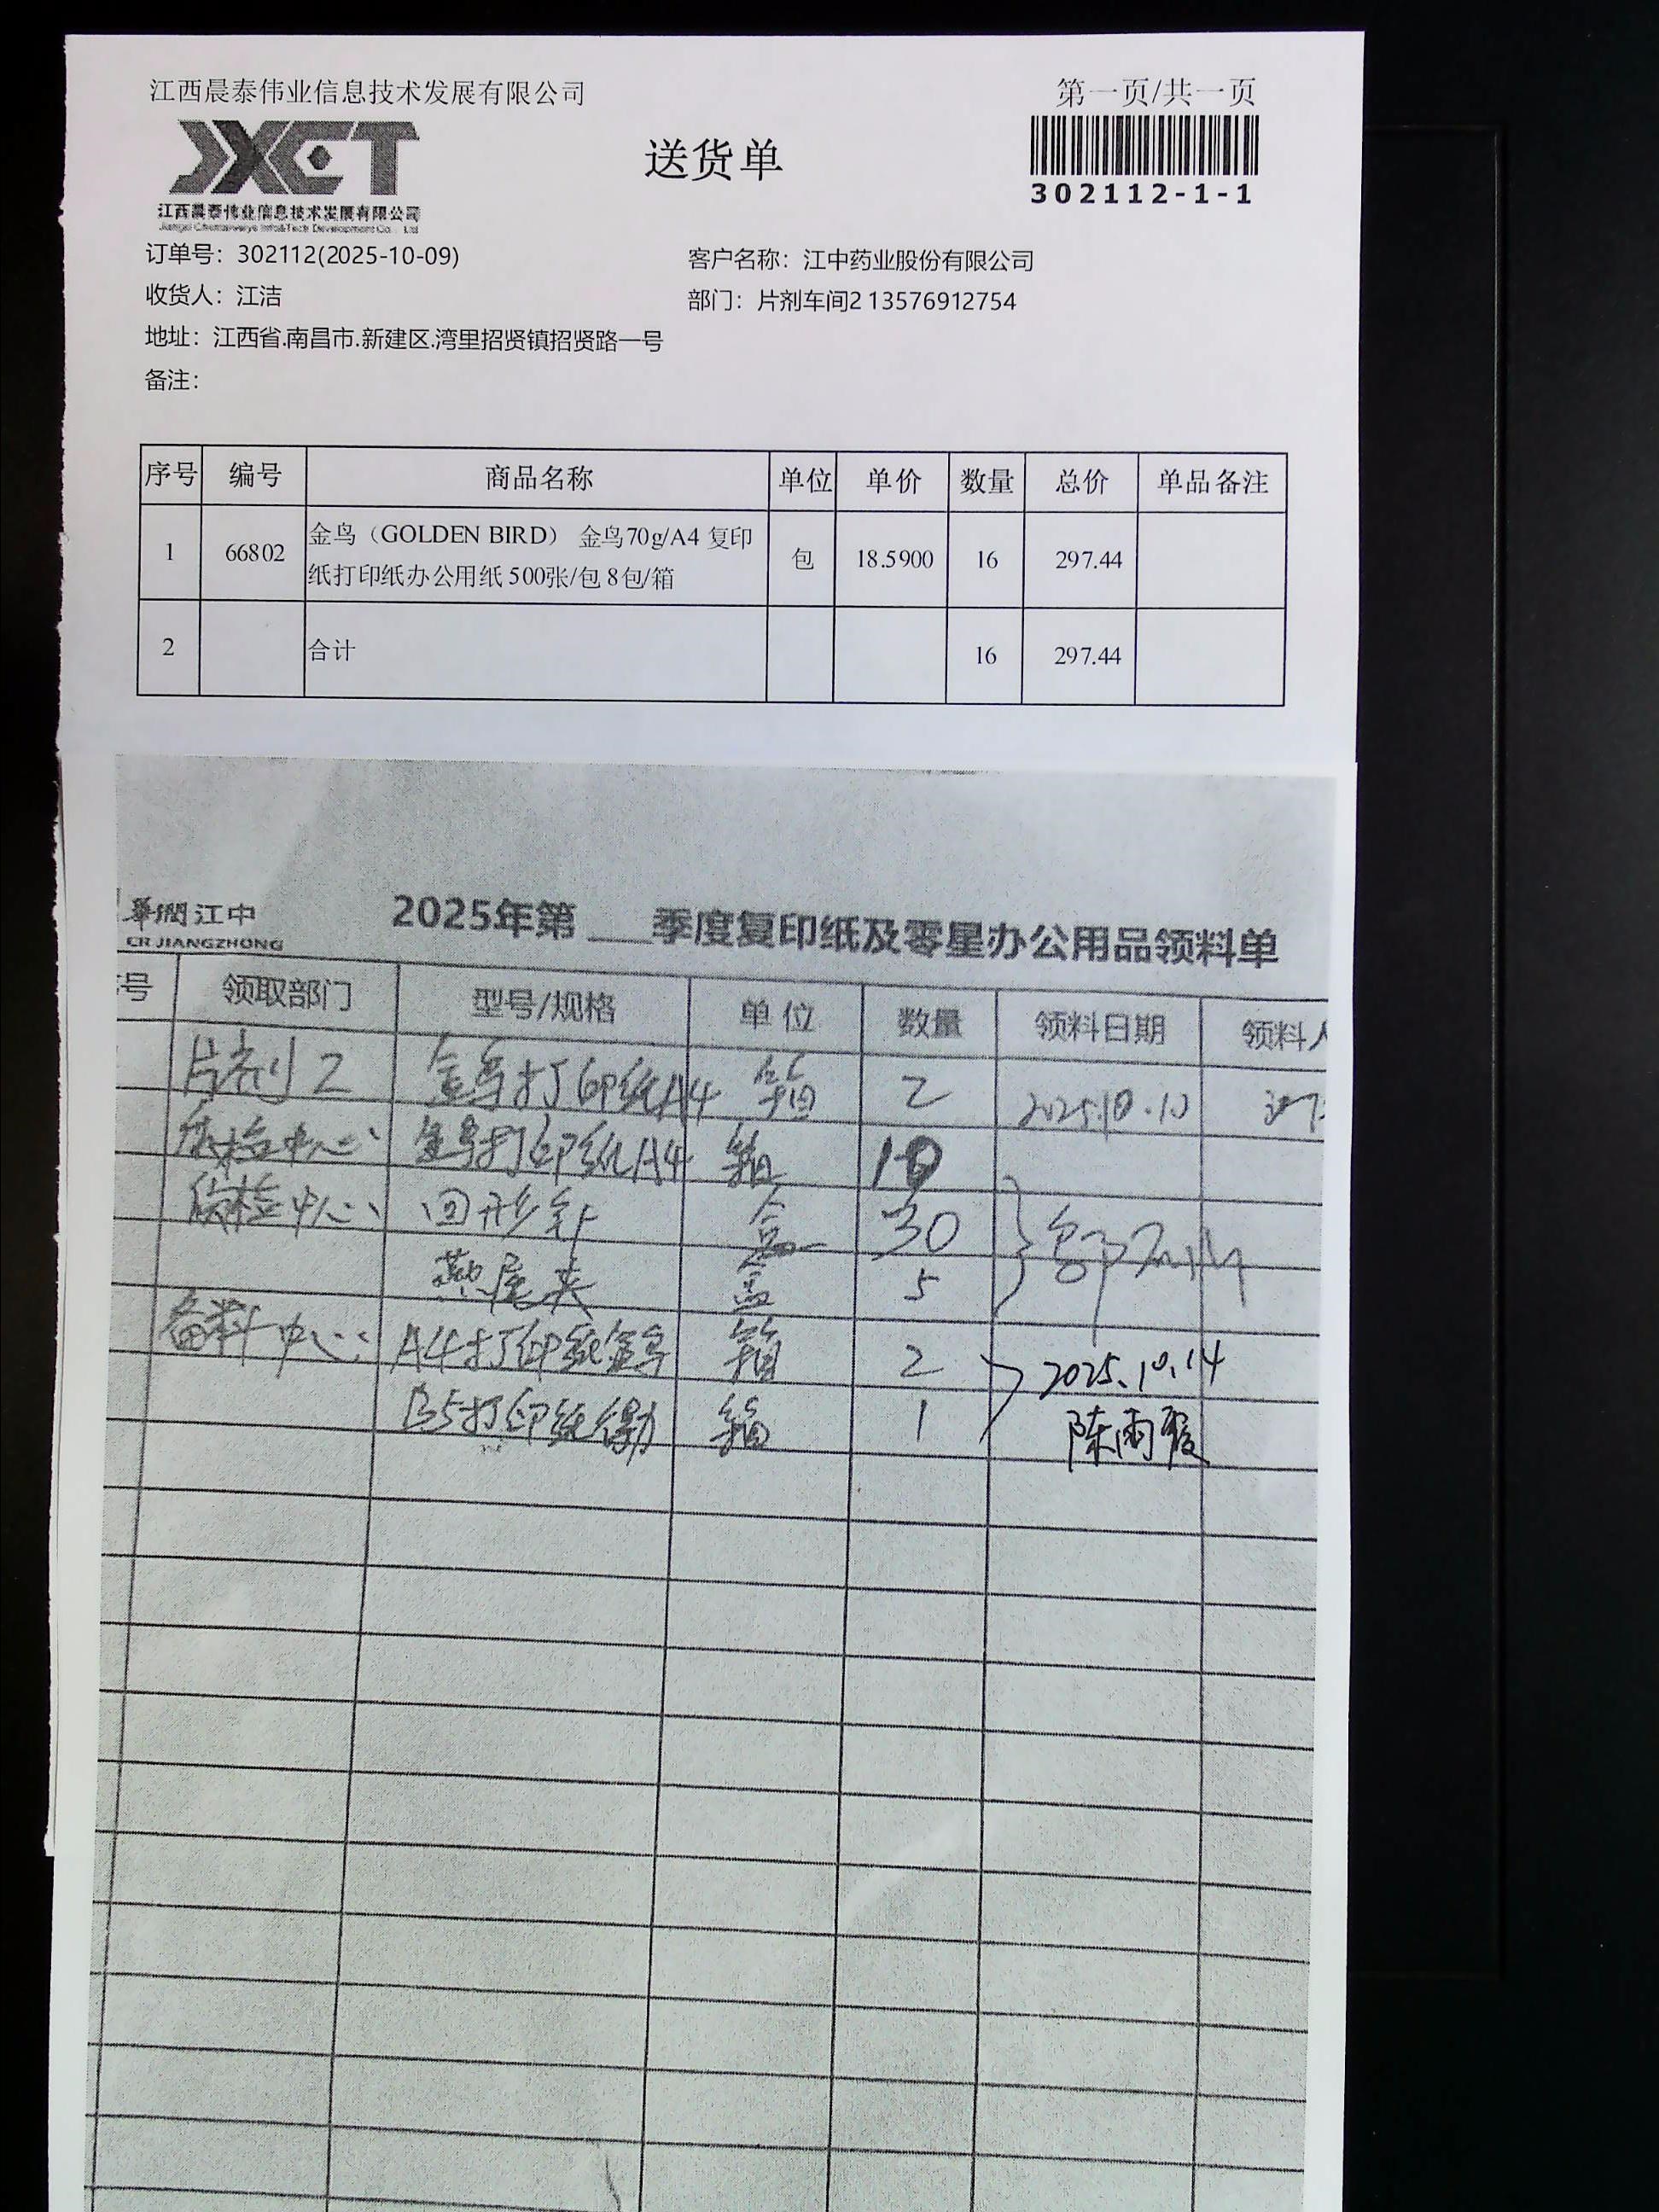 江西晨泰伟业信息技术发展有限公司
第一页/共一页
JXCT
送货单
302112-1-1
江西晨泰伟业信息技术发展有限公司
订单号：302112(2025-10-09)
客户名称：江中药业股份有限公司
收货人：江洁
部门：片剂车间2 13576912754
地址：江西省.南昌市.新建区.湾里招贤镇招贤路一号
备注：
序号 编号 商品名称 单位 单价 数量 总价 单品备注
1 66802 金鸟（GOLDEN BIRD） 金鸟70g/A4 复印
纸打印纸办公用纸 500张/包 8包/箱 包 18.5900 16 297.44
2 合计 16 297.44
華潤江中
CR JIANGZHONG
2025年第___季度复印纸及零星办公用品领料单
号 领取部门 型号/规格 单位 数量 领料日期 领料人
片剂2 金鸟打印纸A4 箱 2 2025.10.10
质检中心 金鸟打印纸A4 箱 10
质检中心 回形针 盒 30
燕尾夹 盒 5
备料中心 A4打印纸金鸟 箱 2 2025.10.14
B5打印纸得力 箱 1 陈雨霞